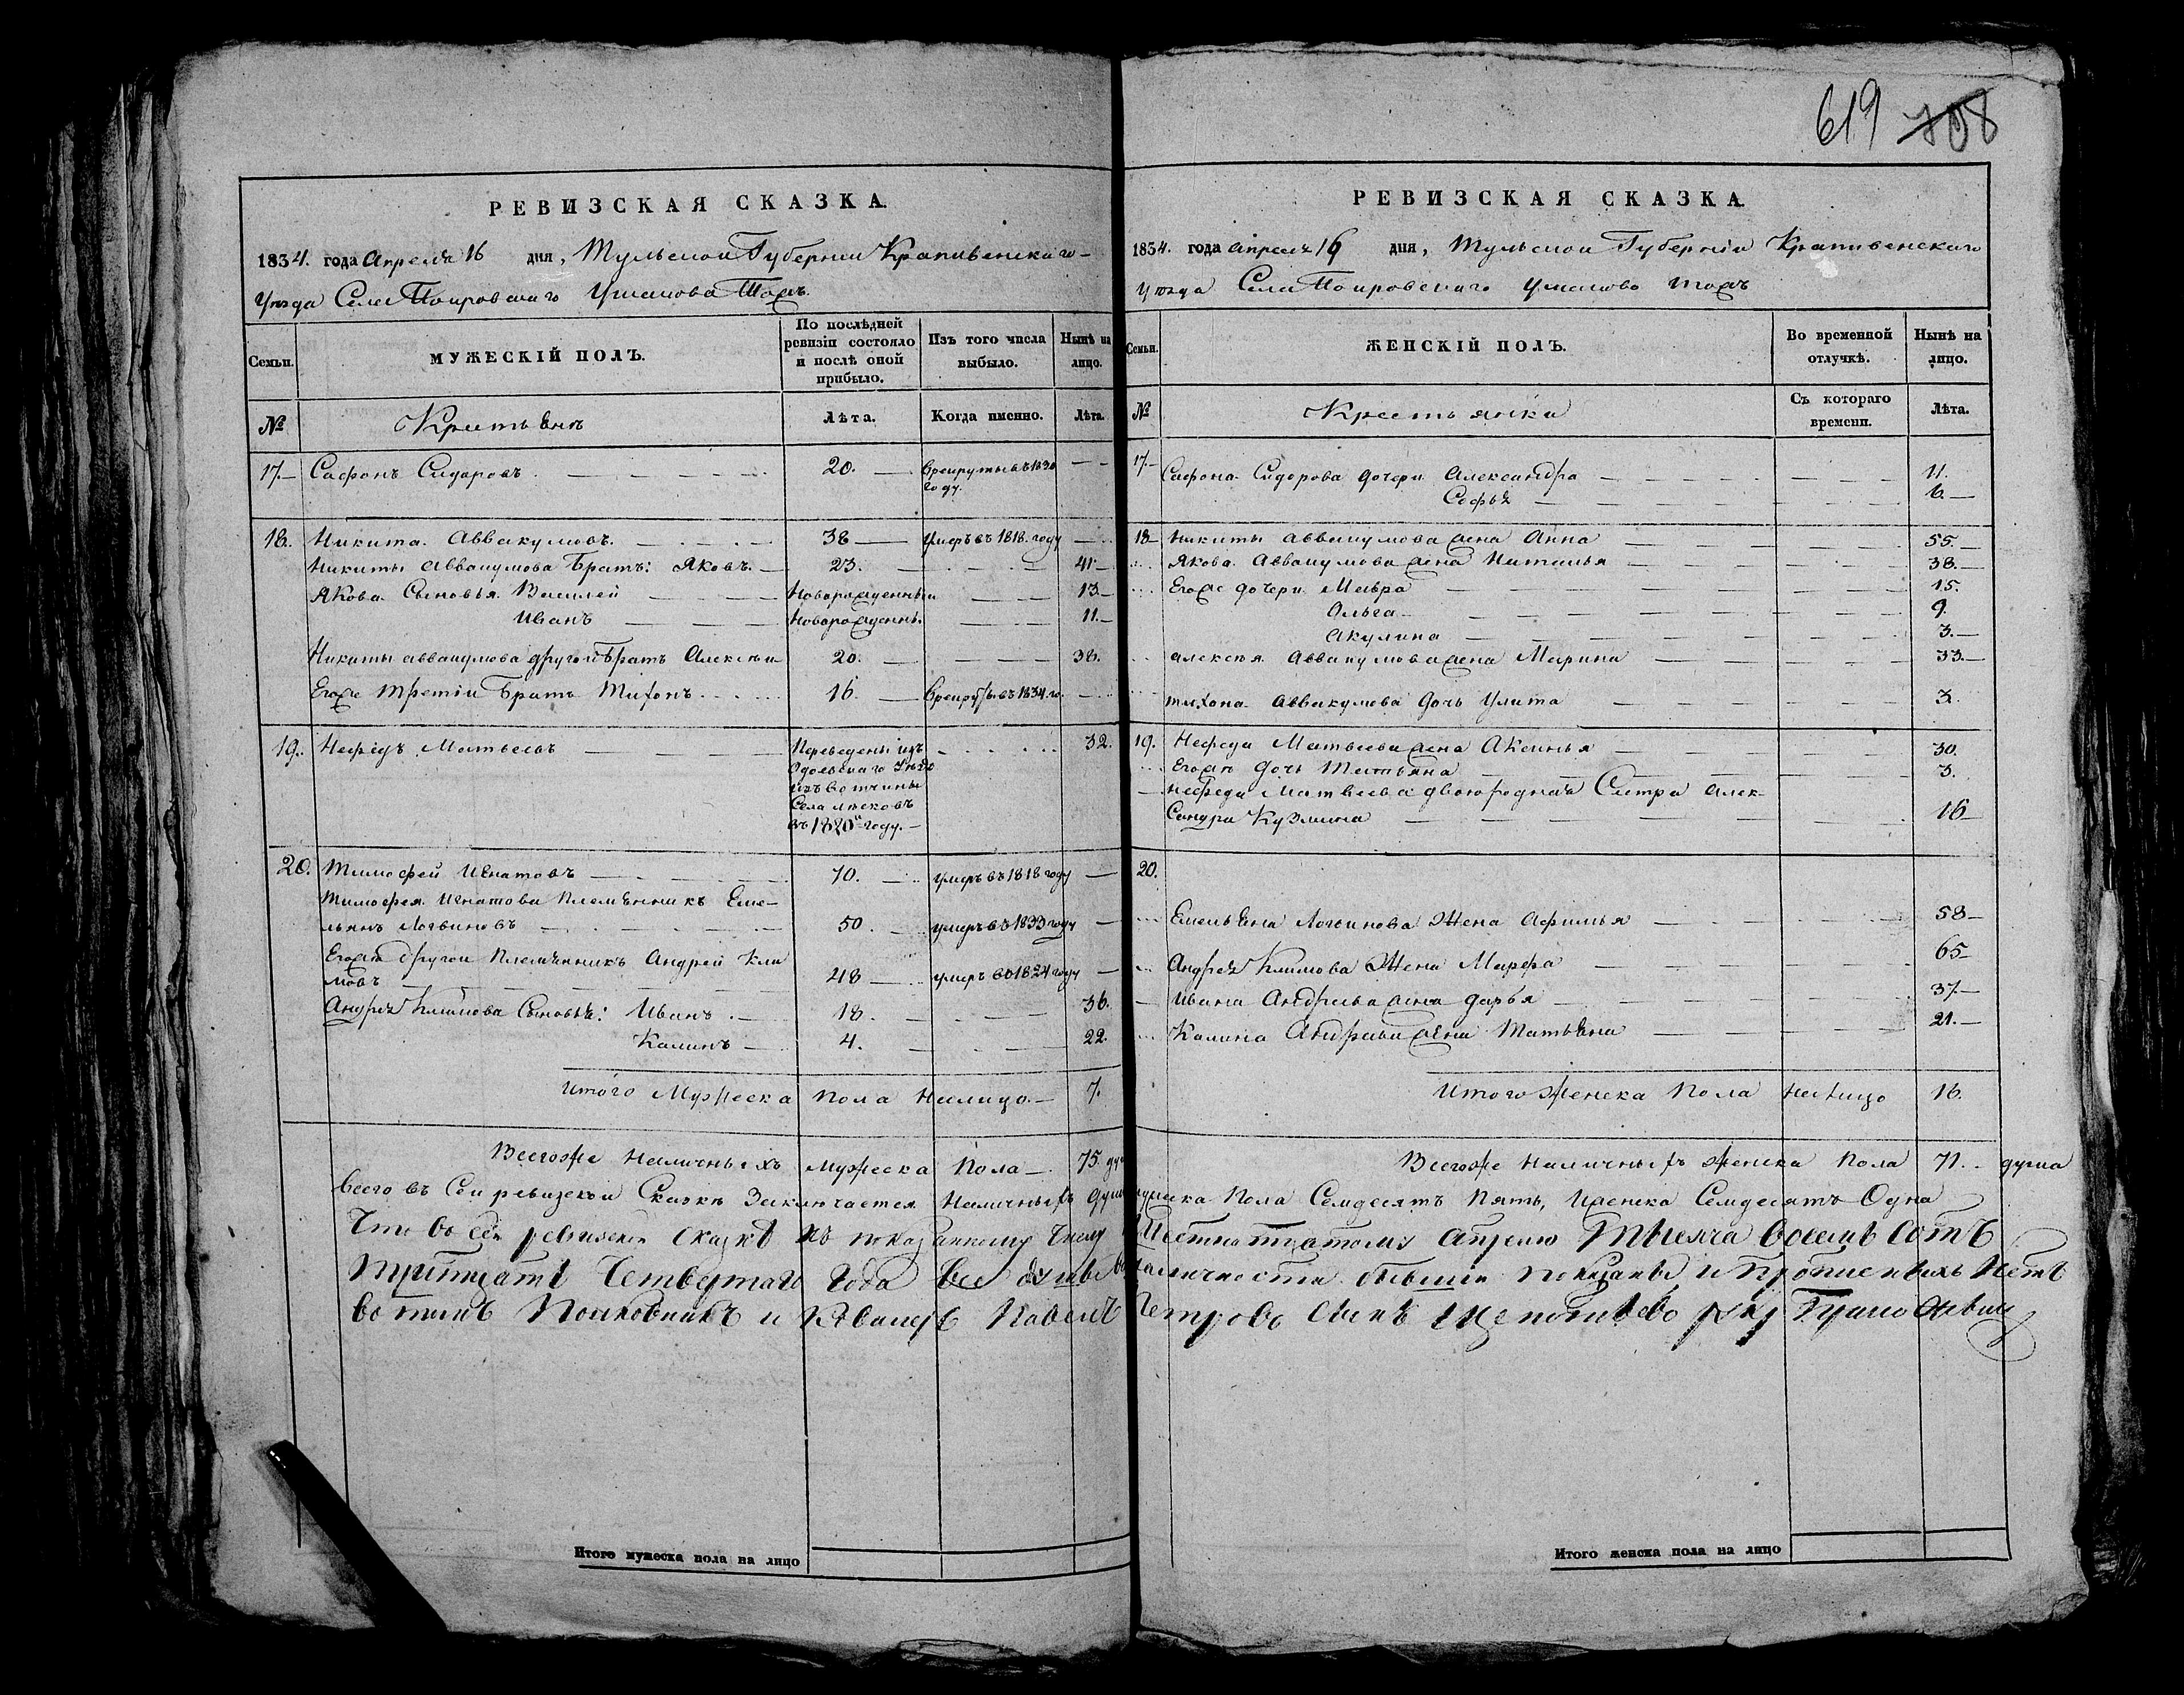 619 708
РЕВИЗСКАЯ СКАЗКА.
1834. года Апреля 16 дня, Тульской Губернии Крапивенскаго
Уезда Села Покровскаго Ушакова Тожъ.
Семьи.
МУЖЕСКІЙ ПОЛЪ.
По послѣдней ревизіи состояло и послѣ оной прибыло.
Изъ того числа выбыло.
Нынѣ на лицо.
№
Крестьянъ
Лѣта.
Когда именно.
Лѣта.
17. Сафонъ Сидоровъ 20. в рекруты въ 1830 году.
18. Никита Аввакумовъ. 38 умеръ въ 1818. году
Никиты Аввакумова Братъ: Яковъ. 23. 41
Якова Сыновья Василей Новорожденный 13
Иванъ Новорожденнъ. 11.
Никиты Аввакумова другой братъ Алексѣй 20. 38.
Егоже третій братъ Тихонъ 16 в рекруты въ 1834 го.
19. Нефедъ Матвеевъ Переведены изъ 32.
Одоевскаго Уѣзда
изъ вотчины
Села
въ 1820 году.
20. Тимофей Игнатовъ 70. умеръ въ 1818 году
Тимофея Игнатова Племянникъ Еме-
льянъ Логвиновъ 50. умеръ въ 1833 году
Егоже другой Племянникъ Андрей Кли
мовъ 48 умеръ в 1824 году
Андрея Климова Сыновья: Иванъ. 18. 36.
Калинъ 4. 22.
Итого Мужеска Пола Налицо. 7.
Всегоже Наличныхъ Мужеска Пола 75. ду
Итого мужеска пола на лицо
РЕВИЗСКАЯ СКАЗКА.
1834. года Апреля 16 дня, Тульской Губерніи Крапивенскаго
Уезда Села Покровскаго Ушаково тожъ
Семьи.
ЖЕНСКІЙ ПОЛЪ.
Во временной отлучкѣ.
Нынѣ на лицо.
№
Крестьянки
Съ котораго времени.
Лѣта.
17. Сафона Сидорова дочери Александра 11.
Софья 6.
18 Никиты Аввакумова жена Анна 55.
Якова Аввакумова жена Наталья 38.
Егоже дочери Мавра 15.
Ольга 9.
Акулина 3.
Алексея Аввакумова жена Марина 33.
Тихона Аввакумова дочь Улита 3.
19. Нефеда Матвеева жена Аксинья 30.
Егожъ дочь Татьяна 3.
Нефеда Матвеева двоюродная Сестра Алек-
сандра Кузмина 16
20.
Емельяна Логвинова Жена Афимья 58
Андрея Климова Жена Марфа 65
Ивана Андреева жена Дарья 37.
Калина Андреева жена Татьяна 21.
Итого Женска Пола Налицо 16.
Всегоже Наличныхъ женска Пола 71. душа
Всего въ Сей ревизской Сказке Заключается Наличныхъ душъ мужеска Пола Семдесятъ Пять, Женска Семдесятъ Одна
Что во сей ревизской сказке къ показанному числу Шестнатцатому Апрелю Тысяча восемь сотъ
Тритцать Четвертаго Года все наличности бывшии показаны, и прописныхъ Нетъ
вотомъ Полковникъ и Кавалеръ Павелъ Петрово сынъ
Итого женска пола на лицо